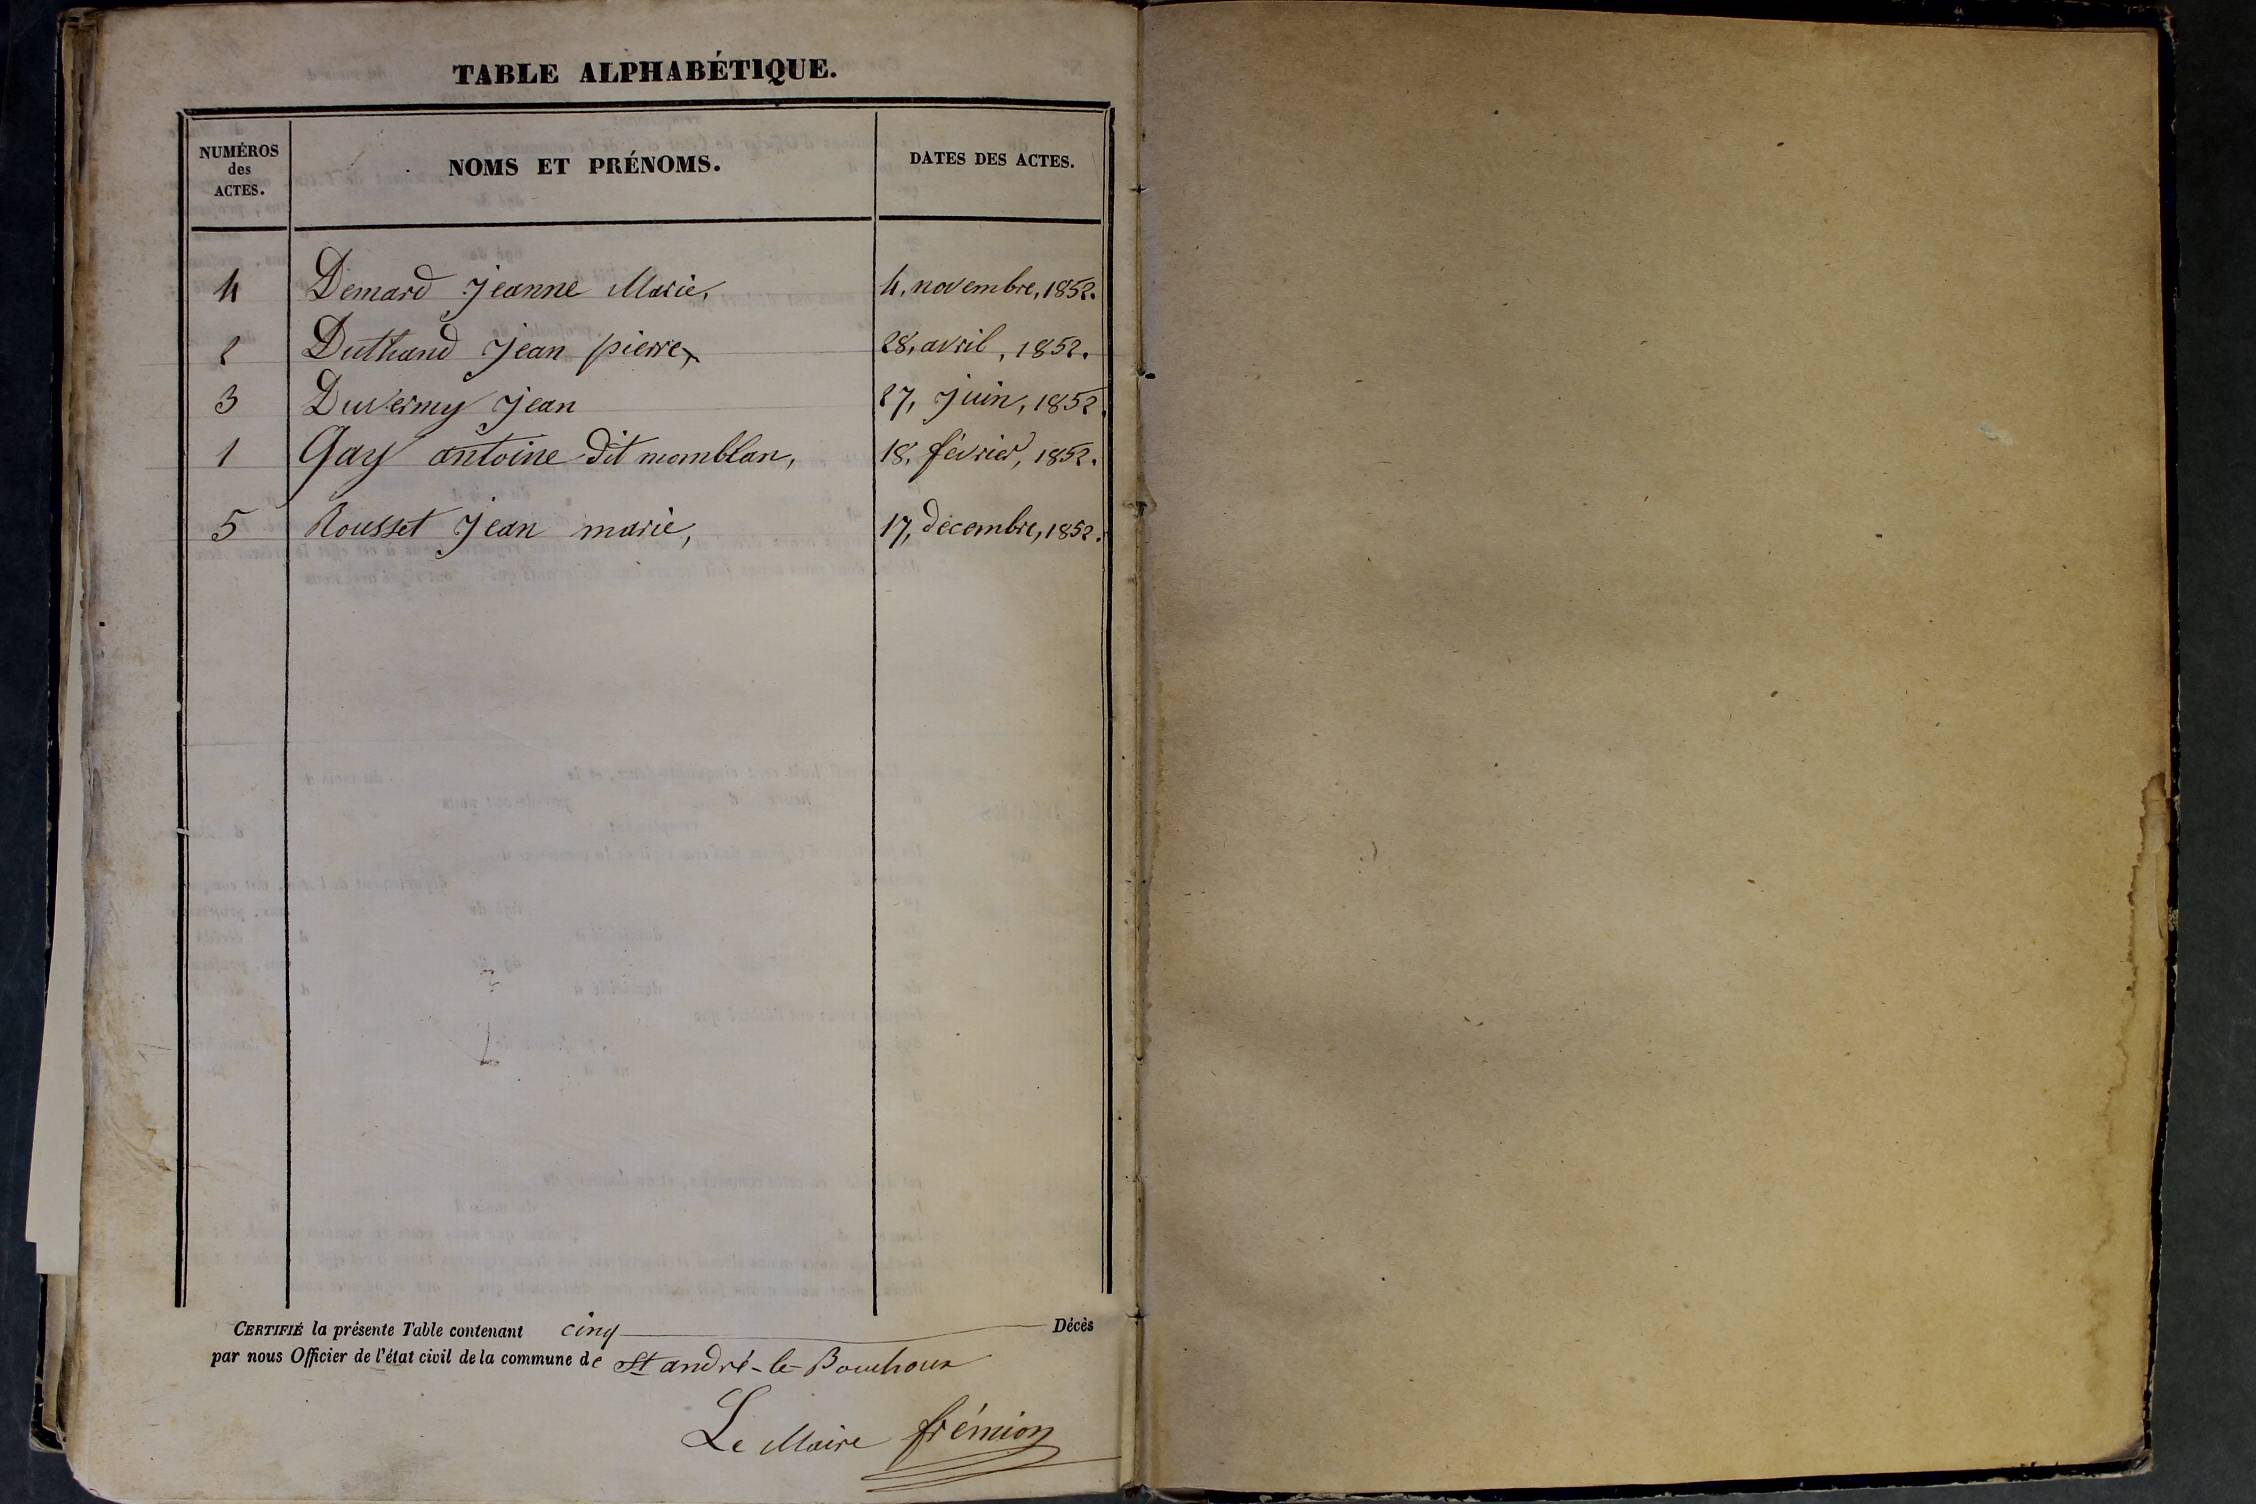 TABLE ALPHABÉTIQUE.
NUMÉROS des ACTES. NOMS ET PRÉNOMS. DATES DES ACTES.
4 Demard Jeanne Marie, 4, novembre, 1852.
2 Duthand Jean pierre, 28, avril, 1852.
3 Duvermy Jean 27, Juin, 1852.
1 Gay antoine dit momblan, 18, février, 1852.
5 Rousset Jean marie, 17, décembre, 1852.
CERTIFIÉ la présente Table contenant cinq Décès
par nous Officier de l'état civil de la commune de St andré-le-Bouchoux
Le Maire frémion